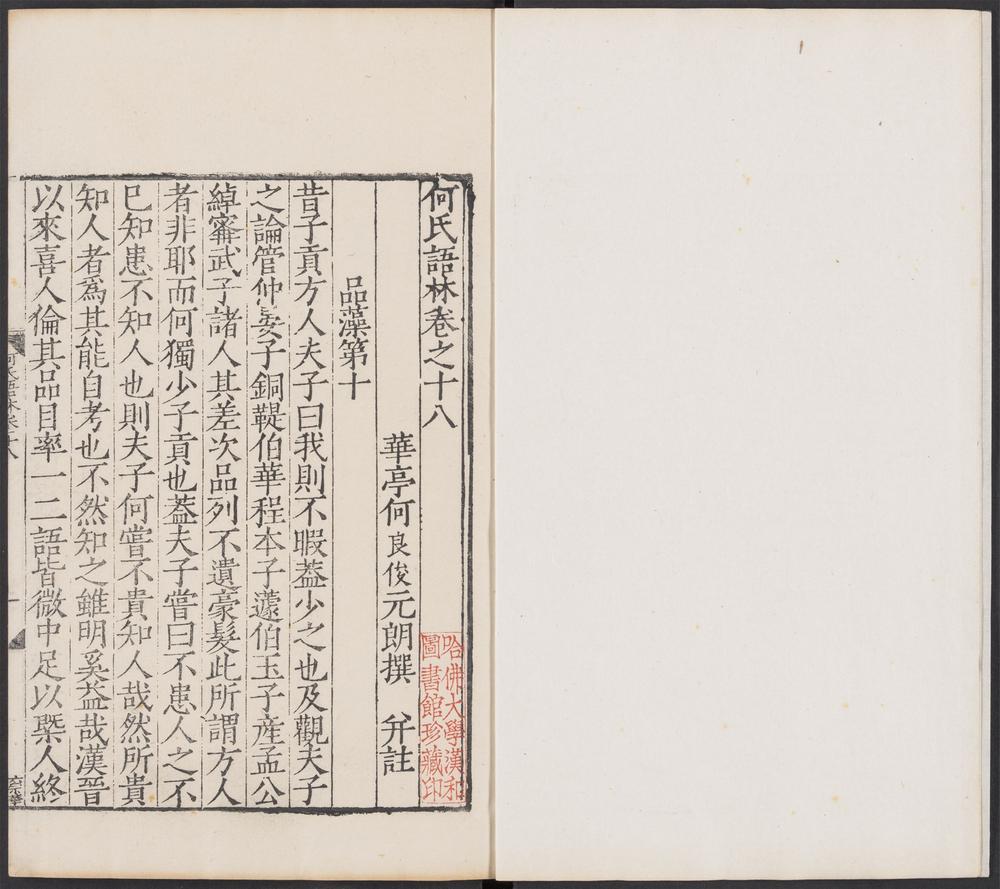 何氏語林卷之十八
華亭何良俊元朗撰 幷註
品藻第十
昔子貢方人夫子曰我則不暇葢少之也及觀夫子
之論管仲晏子銅鞮伯華程本子蘧伯玉子産孟公
綽甯武子諸人其差次品列不遺豪髮此所謂方人
者非耶而何獨少子貢也葢夫子嘗曰不患人之不
已知患不知人也則夫子何嘗不貴知人哉然所貴
知人者爲其能自考也不然知之雖明奚益哉漢晉
以來喜人倫其品目率一二語皆微中足以槩人終
哈佛大學漢和
圖書館珍藏印